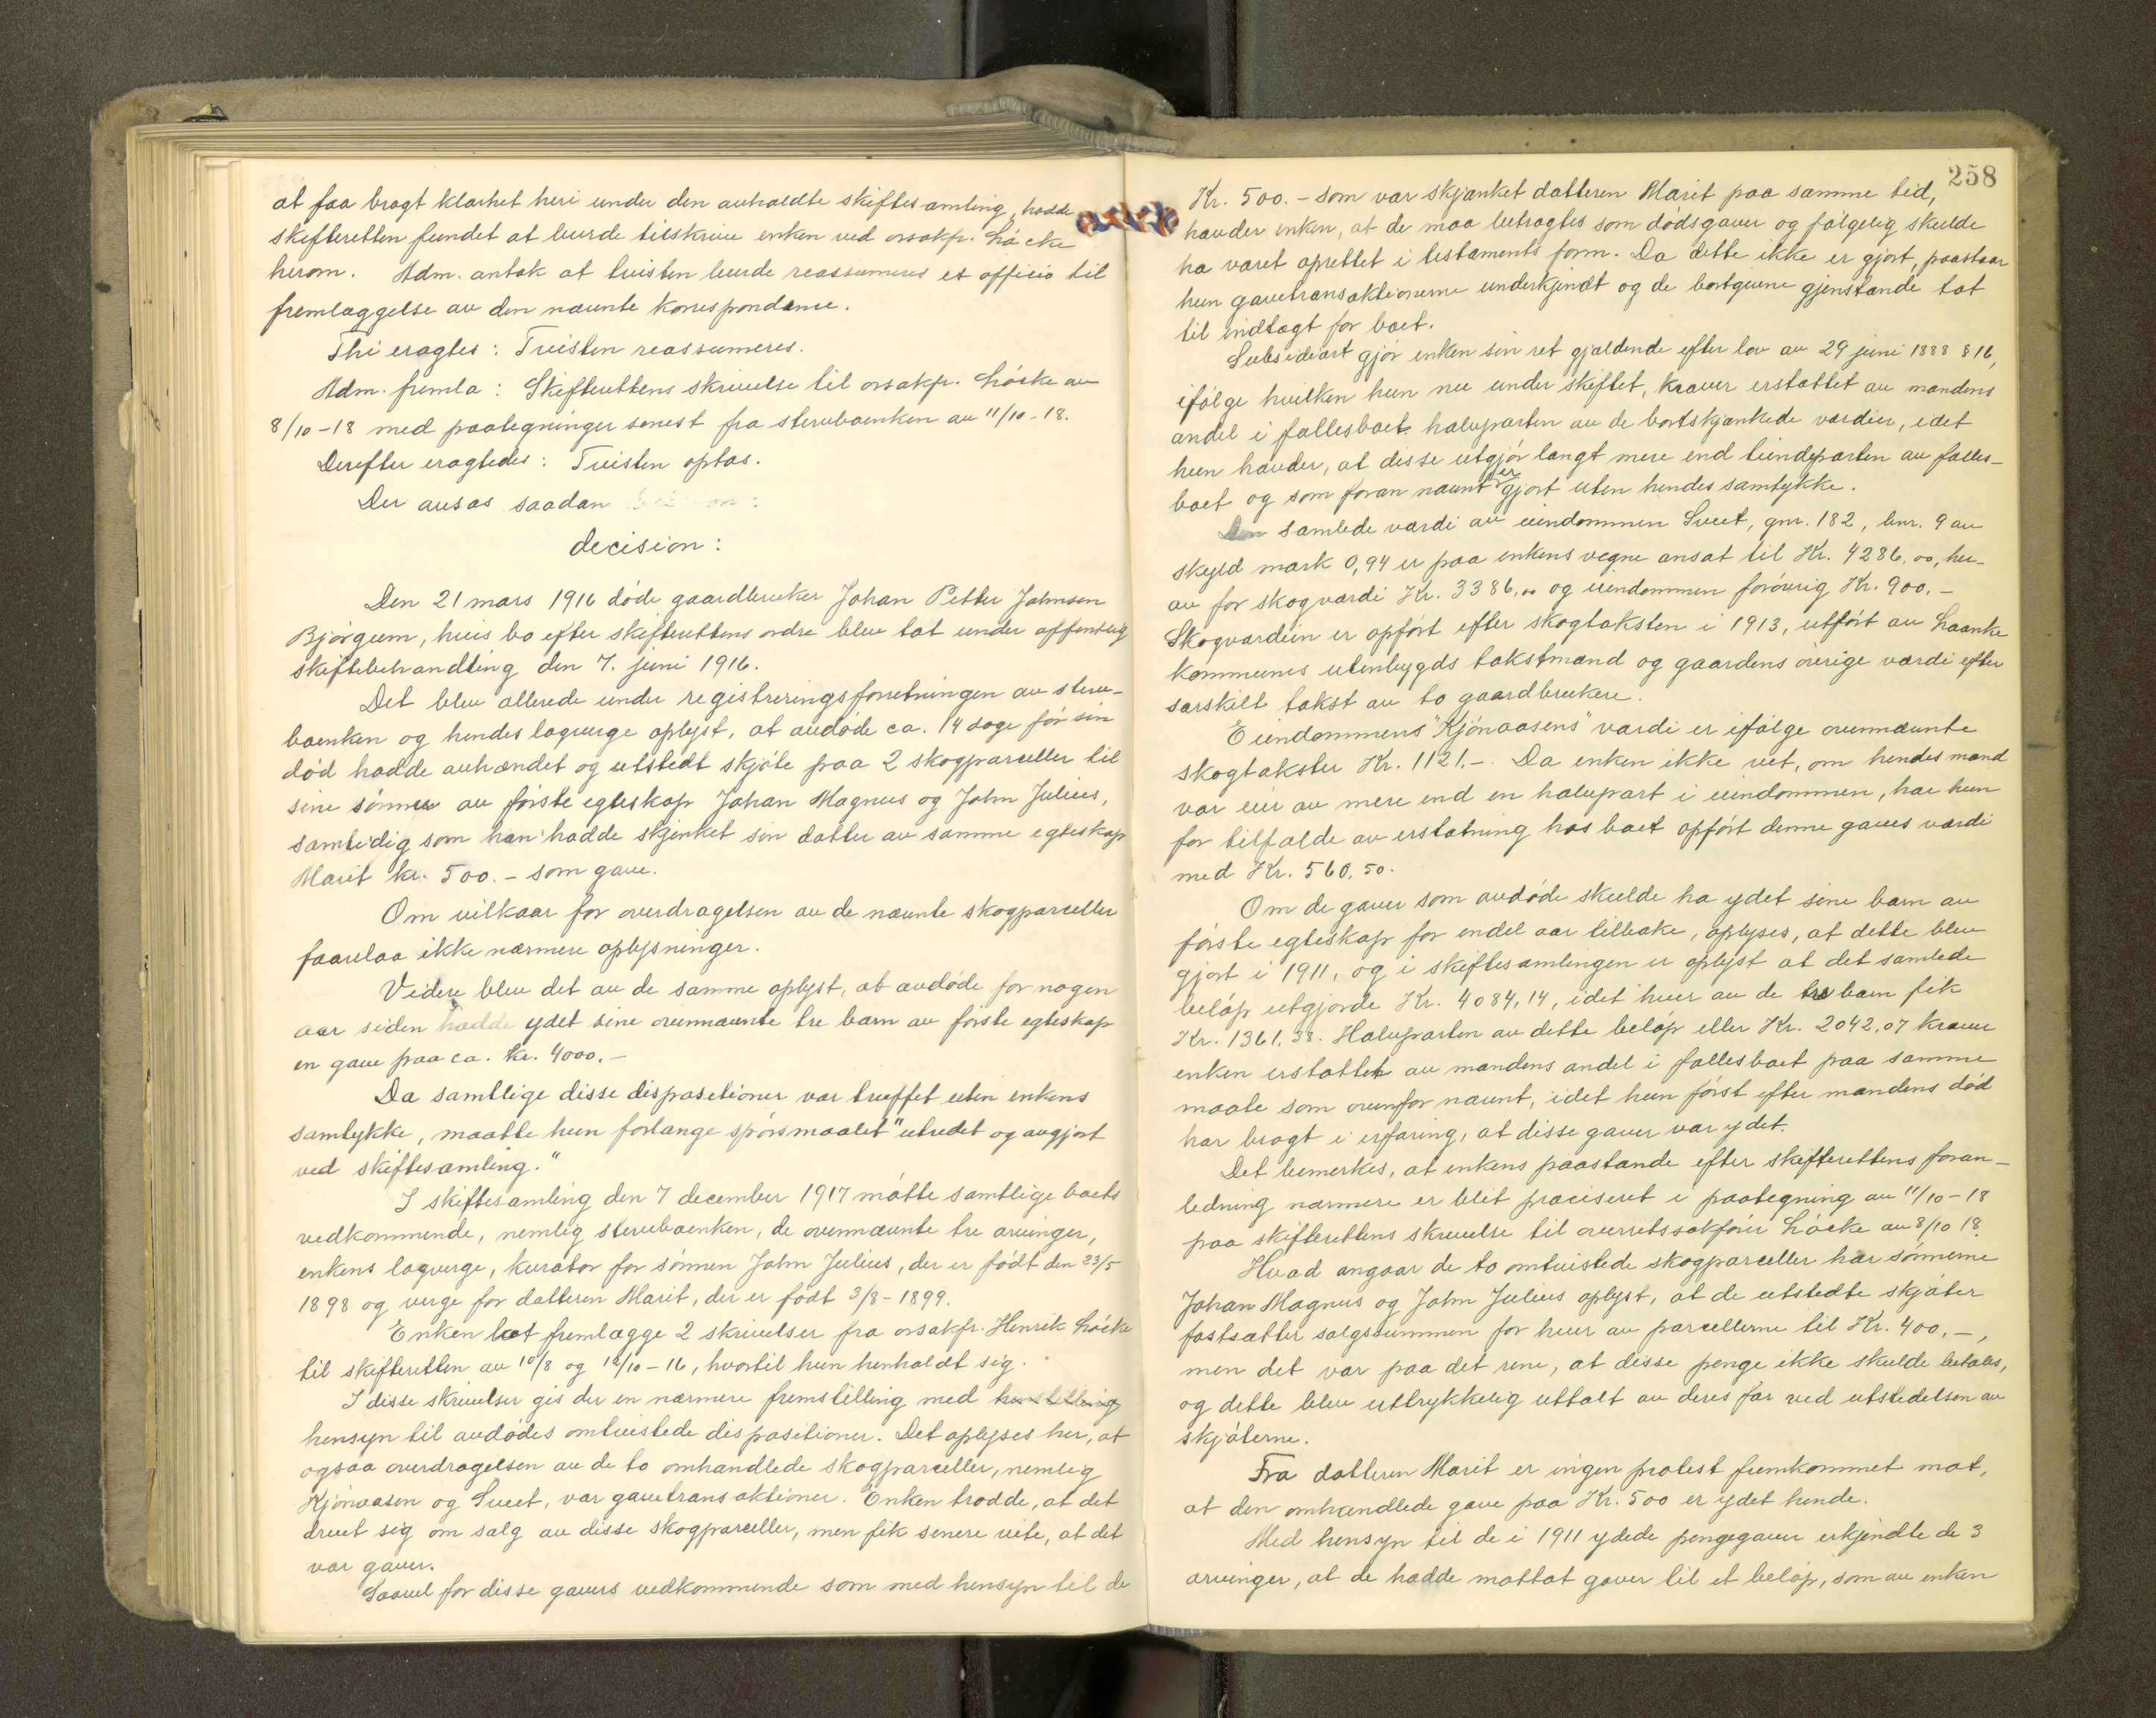 at faa bragt klarhet heri under den avholdte skiftesamling, hadde
skifteretten fundet at burde tilskrive enken ved orsakfr. Löcke
herom. Adm. antok at tvisten burde reassumeres ex officio til
fremlæggelse av den nævnte korrespondanse.
Thi eragtes: Tvisten reassumeres.
Adm. fremla: Skifterettens skrivelse til orsakfr. Löcke av
8/10-18 med paategninger senest fra stervboenken av 11/10-18.
Derefter eragtedes: Tvisten optas.
Der avsas saadan
decision:
Den 21 mars 1916 döde gaardbruker Johan Petter Johnsen
Bjørgum, hvis bo efter skifterettens ordre blev tat under offentlig
skiftebehandling den 7. juni 1916.
Det blev allerede under registreringsforretningen av sterv-
boenken og hendes lagverge oplyst, at avdøde ca. 14 dage før sin
død hadde avhændet og utstedt skjøte paa 2 skogparceller til
sine sønner av første egteskap Johan Magnus og John Julius,
samtidig som han hadde skjenket sin datter av samme egteskap
Marit kr. 500.- som gave.
Om vilkaar for overdragelsen av de nævnte skogparceller
faarelaa ikke nærmere oplysninger.
Videre blev det av de samme oplyst, at avdøde for nogen
aar siden hadde ydet sine ovennævnte tre barn av første egteskap
en gave paa ca. kr. 4000.-
Da samtlige disse dispositioner var truffet uten enkens
samtykke, maatte hun forlange spörsmaalet "utredet og avgjort
ved skiftesamling."
I skiftesamling den 7 december 1917 møtte samtlige boets
vedkommende, nemlig stervboenken, de ovennævnte tre arvinger,
enkens lagverge, kurator for sønnen John Julius, der er født den 23/5
1898 og verge for datteren Marit, der er født 3/8-1899.
Enken lot fremlægge 2 skrivelser fra orsakfr. Henrik Löcke
til skifteretten av 10/8 og 12/10-16, hvortil hun henholdt sig.
I disse skrivelser gis der en nærmere fremstilling med henstilling
hensyn til avdødes omtvistede dispositioner. Det oplyses her, at
ogsaa overdragelsen av de to omhandlede skogparceller, nemlig
Kjönaasen og Sveet, var gavetransaktioner. Enken trodde, at det
dreiet sig om salg av disse skogparceller, men fik senere vite, at det
var gaver.
Saavel for disse gavers vedkommende som med hensyn til de
258
Kr. 500.- som var skjænket datteren Marit paa samme tid,
hævder enken, at de maa betragtes som dødsgaver og følgelig skulde
ha været oprettet i testaments form. Da dette ikke er gjort, paastaar
hun gavetransaktionerne underkjendt og de bortgivne gjenstande tat
til indtægt for boet.
Subsidiært gjør enken sin ret gjældende efter lov av 29 juni 1888 § 16,
ifølge hvilken hun nu under skiftet, kræver erstattet av mandens
andel i fællesboet halvparten av de bortskjænkede værdier, idet
hun hævder, at disse utgjør langt mere end tiendeparten av fælles-
boet og som foran nævnt er gjort uten hendes samtykke.
Den samlede værdi av eiendommen Sveet, gnr. 182, bnr. 9 av
skyld mark 0,94 er paa enkens vegne ansat til Kr. 4286,00, her-
av for skogværdi Kr. 3386,00 og eiendommen forøvrig Kr. 900.-
Skogværdien er opført efter skogtaksten i 1913, utført av Laanke
kommunes utenbygds takstmænd og gaardens øvrige værdi efter
særskilt takst av to gaardbrukere.
Eiendommens "Kjönaasens" værdi er ifølge ovennævnte
skogtakster Kr. 1121.-. Da enken ikke vet, om hendes mand
var eier av mere end en halvpart i eiendommen, har hun
for tilfælde av erstatning hos boet opført denne gaves værdi
med Kr. 560,50.
Om de gaver som avdøde skulde ha ydet sine barn av
første egteskap for endel aar tilbake, oplyses, at dette blev
gjort i 1911, og i skiftesamlingen er oplyst at det samlede
beløp utgjorde Kr. 4084,14, idet hver av de tre barn fik
Kr. 1361,38. Halvparten av dette beløp eller Kr. 2042,07 kræver
enken erstattet av mandens andel i fællesboet paa samme
maate som ovenfor nævnt, idet hun først efter mandens død
har bragt i erfaring, at disse gaver var ydet.
Det bemerkes, at enkens paastande efter skifterettens foran-
ledning nærmere er blit præciseret i paategning av 11/10-18
paa skifterettens skrivelse til overretssakfører Löcke av 8/10 18.
Hvad angaar de to omtvistede skogparceller har sønnerne
Johan Magnus og John Julius oplyst, at de utstedte skjøter
fastsætter salgssummen for hver av parcellerne til Kr. 400.-,
men det var paa det rene, at disse penge ikke skulde betales,
og dette blev uttrykkelig uttalt av deres far ved utstedelsen av
skjøterne.
Fra datteren Marit er ingen protest fremkommet mot,
at den omhandlede gave paa Kr. 500 er ydet hende.
Med hensyn til de i 1911 ydede pengegaver erkjendte de 3
arvinger, at de hadde mottat gaver til et beløp, som av enken